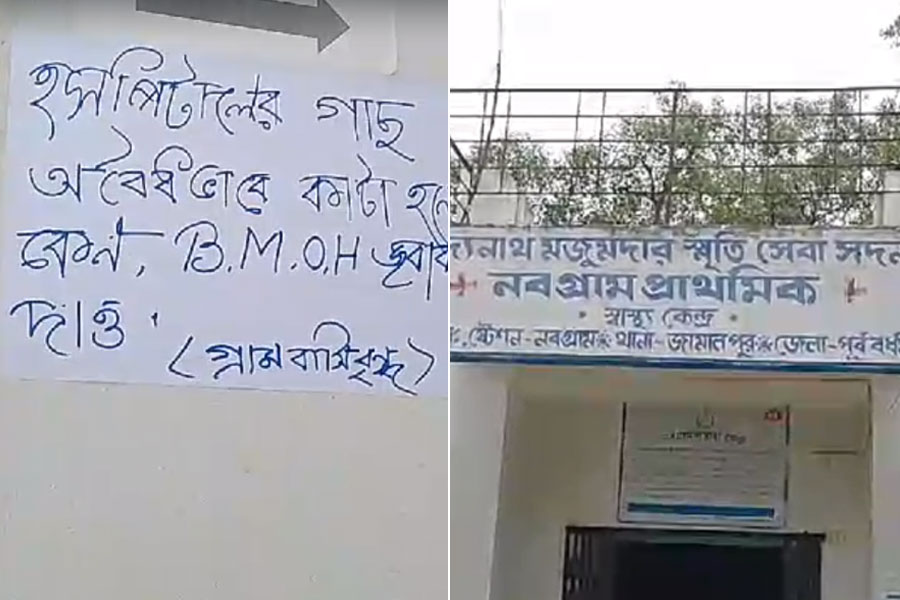 হসপিটালের গাছ
অবৈধভাবে কাটা হলো
কেন, B.M.O.H জবাব
দাও.
(গ্রামবাসিবৃন্দ)
দ্যনাথ মজুমদার স্মৃতি সেবা সদন
+ নবগ্রাম প্রাথমিক +
• স্বাস্থ্য কেন্দ্র •
ষ্টেশন-নবগ্রাম * থানা-জামালপুর * জেলা-পূর্ব বর্ধ